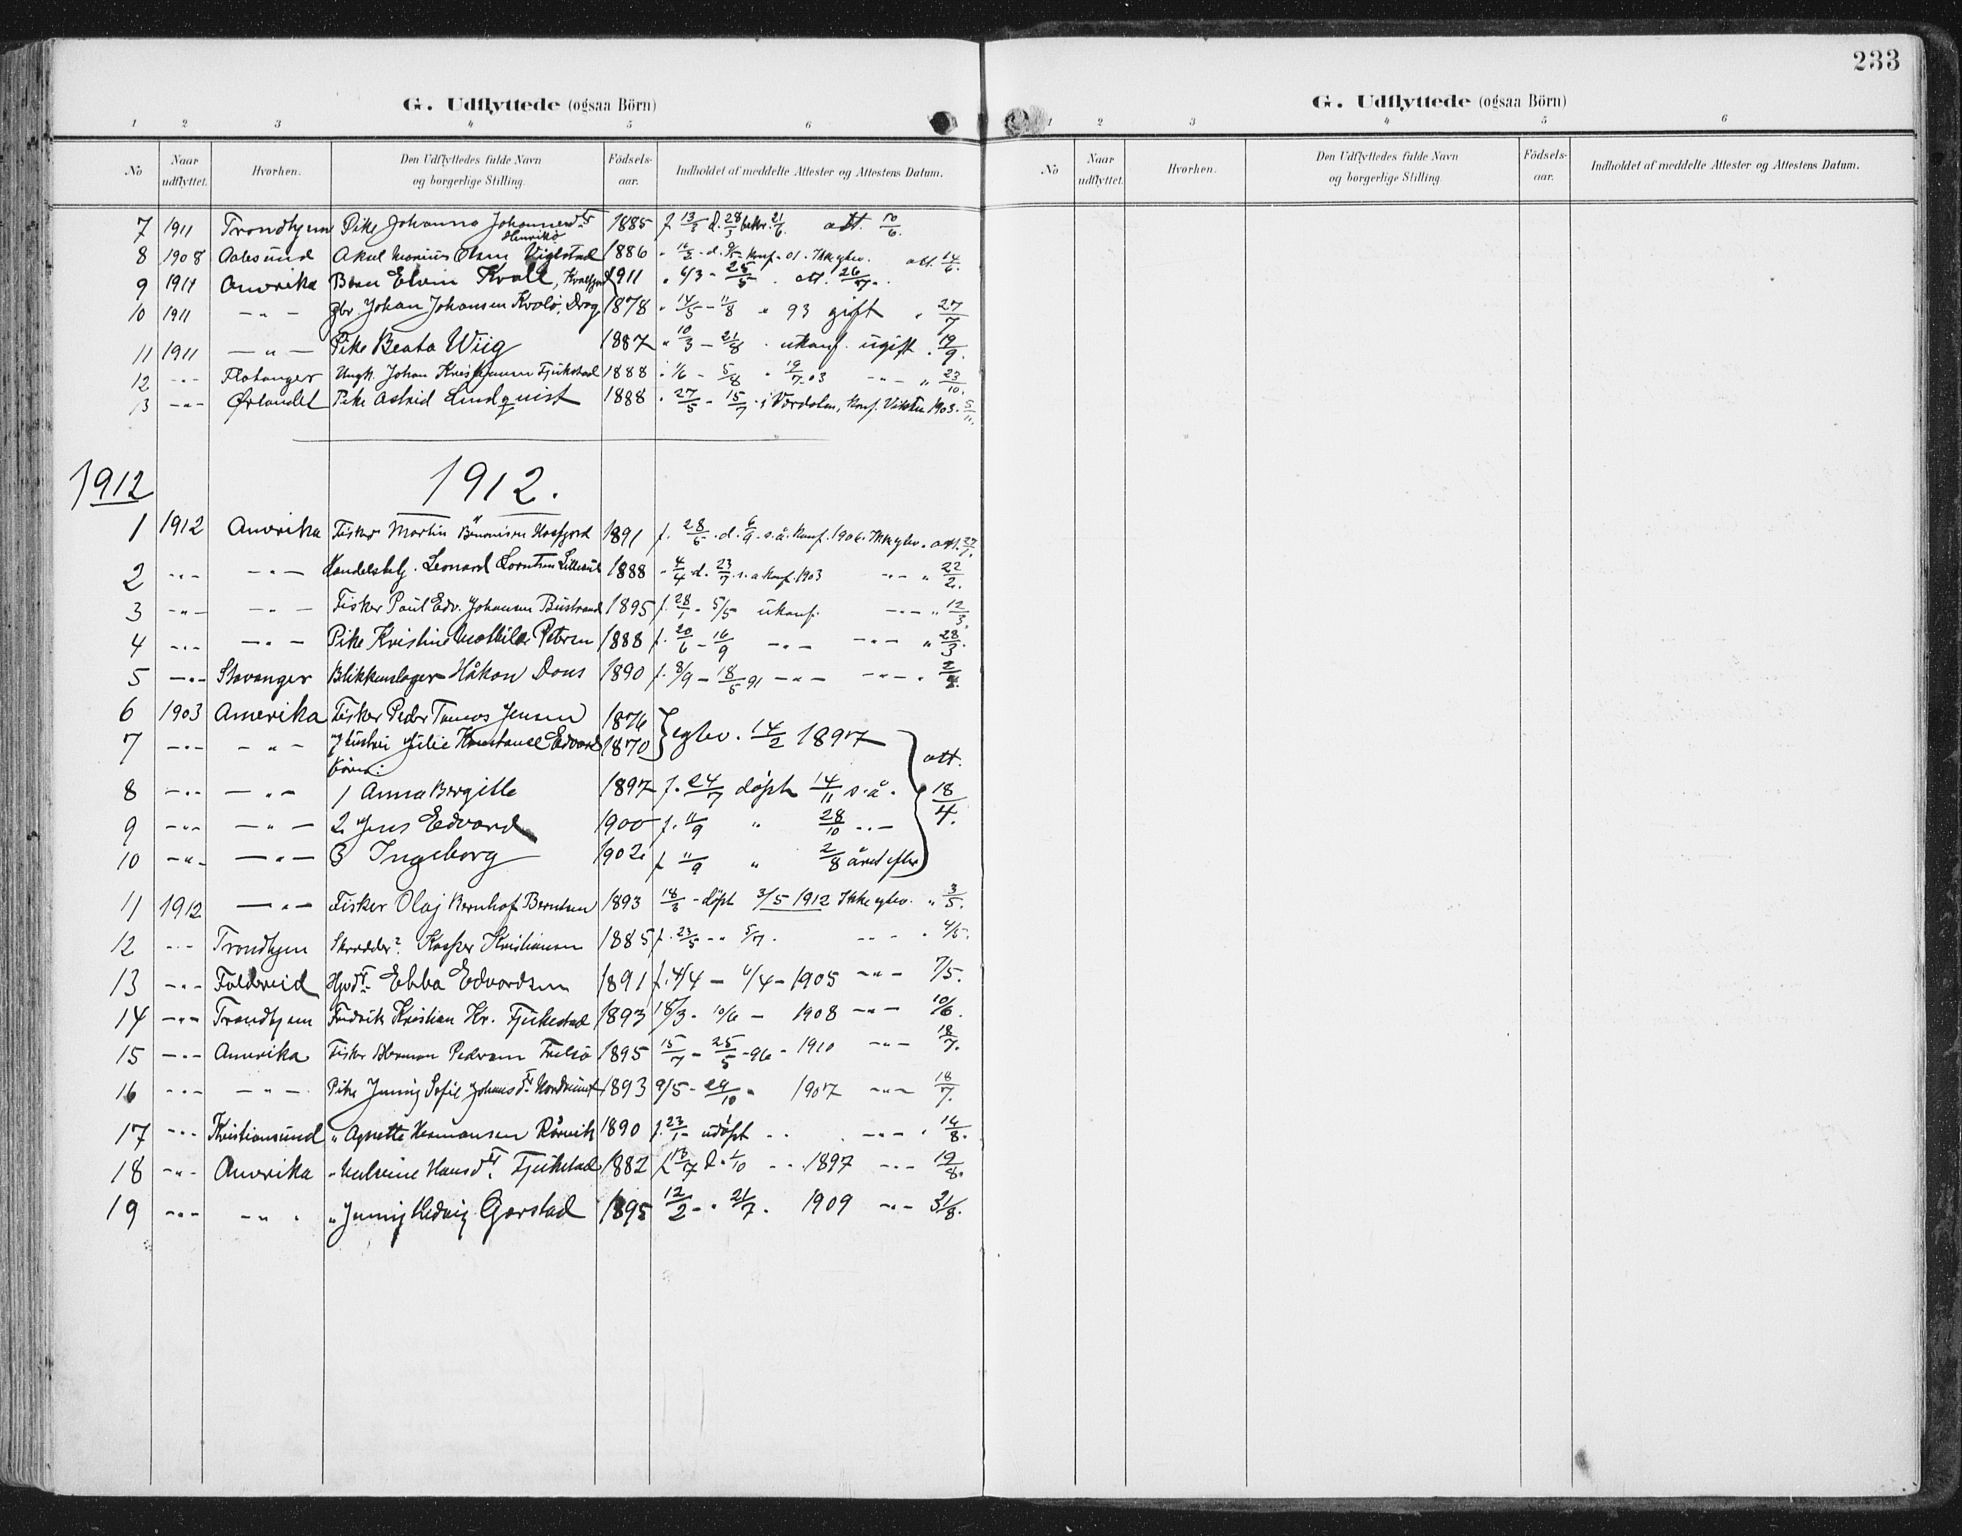 G. Udflyttede (ogsaa Börn)
1 2 3 4 5 6
No Naar udflyttet. Hvorhen. Den Udflyttedes fulde Navn og borgerlige Stilling. Födsels-aar. Indholdet af meddelte Attester og Attestens Datum.
7 1911 Trondhjem Pike Johanna 1885 f 13/3 d. 28/3 21/6 att. 10/6.
8 1908 Aalesund Aksel Marius Olsen 1886 Ikke eglev. att. 14/6.
9 1911 Amerika Barn Elvin Kvall, 1911 4/3 - 28/5 att. 26/7.
10 1911 - " - Johan Johansen Kvalö, Drag 1878 " 14/5 - 11/8 " 93 gift " 27/7
11 1911 - " - Pike Beata Wiig 1887 " 10/3 - 21/8 . ukonf. ugift . 19/9.
12 - " - Flatanger Ungk. Johan Kristian Fjukstad 1888 1/6 - 5/8 " 19/7 03 - " - " 23/10.
13 - " - Ørlandet Pike Astrid Lindquist 1888 . 27/5 - 15/7 - i Værdalen, konf. 1903. 5/11.
1912 1912.
1 1912 Amerika Fisker Martin Benonisen 1891 f. 28/6 . d. 6/9 . s.å. konf. 1906. Ikke eglev. att. 27/1.
2 - " - - " - Leonard Lorntsen 1888 - 4/4 d. 23/7 s.a konf. 1903 - " - " 22/2.
3 - " - - " - Fisker Paul Edv. Johansen Bustrand 1895 f. 28/1 - 5/5 ukonf. - " - " 12/3.
4 - " - - " - Pike Kristine Mathilde Petersen 1888 f. 20/6 - 16/9 - " - - " - " 28/3.
5 - " - Stavanger Blikkenslager Håkon Dons 1890 f. 8/9 - 18/5 91 - " - - " - .
6 1903 Amerika Fisker Peder Tomas Jensen 1876 } eglev. 14/2 1897
7 - " - - " - Hustru Julie Konstance Edvard 1870
börn:
att. 18/4.
8 - " - - " - 1 Anna Bergitte 1897 f. 24/7 döpt 14/11 s.å.
9 - " - - " - 2 Jens Edvard 1900 f. 11/9 " 28/10 - " -
10 - " - - " - 3 Ingeborg 1902 f 11/9 " 2/8 året efter
11 1912 - " - Fisker Olaf Bernhof Berntsen 1893 18/3 - döpt 3/5 1912 Ikke eglev. " 3/5.
12 - " - Trondhjem Skrædder? Kasper Kristiansen 1885 f. 23/5 - " 5/7. - " - " 4/5.
13 - " - Foldereid Ebba Edvardsen 1891 f. 4/4 - 6/4 - 1905 - " - 7/5.
14 - " - Trondhjem Fredrik Kristian Kr. Fjukstad 1893 18/3 - 10/6 - 1908 - " - 10/6.
15 - " - Amerika Fisker Herman Pedersen 1895 15/7 - 25/5 - 96 - 1910 - " - 18/7.
16 - " - - " - Pike Jenny Sofie 1893 9/5 - 29/10 " 1907 - " - 18/7.
17 - " - Kristiansund " Agnette Hermansen Rörvik 1890 f. 23/1 - udöpt - " . - " - . 16/8.
18 - " - Amerika Fjukstad 1882 f 13/7 d. 1/10 - " . 1897 - " - 19/8.
19 - " - - " - " Jenny Hedvig Garstad 1895 12/2 - " 21/7 . 1909 - " - 31/8.
233
G. Udflyttede (ogsaa Börn)
1 2 3 4 5 6
No Naar udflyttet. Hvorhen. Den Udflyttedes fulde Navn og borgerlige Stilling Födsels-aar. Indholdet af meddelte Attester og Attestens Datum.